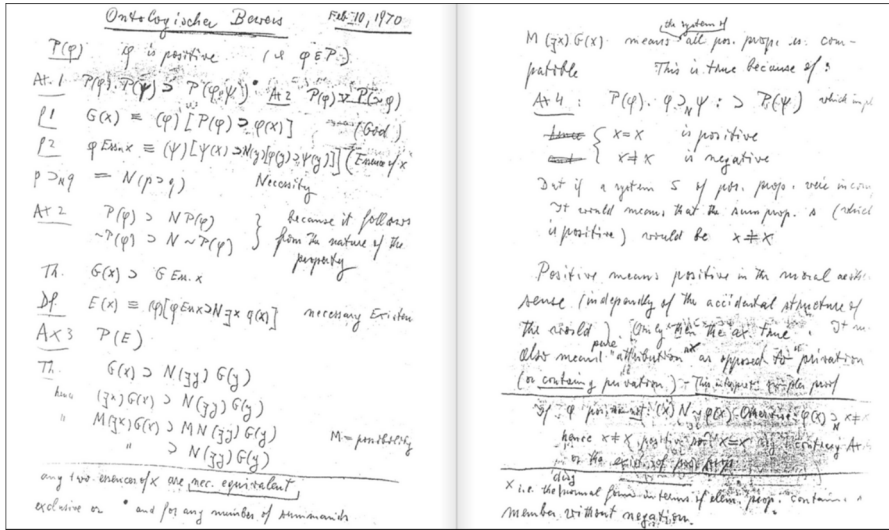 Ontologischer Beweis Feb. 10, 1970
P(φ) φ is positive (i.e. φ ∈ P.)
At. 1 P(φ).P(ψ) ⊃ P(φ.ψ) At 2 P(φ) ∨ P(~φ)
P1 G(x) ≡ (φ)[P(φ) ⊃ φ(x)] (God)
P2 φ Ess. x ≡ (ψ)[ψ(x) ⊃ N(y)[φ(y) ⊃ ψ(y)]] (Essence of x
p ⊃N q = N(p ⊃ q) Necessity
At 2 P(φ) ⊃ N P(φ) } because it follows
~P(φ) ⊃ N ~P(φ) } from the nature of the
property
Th. G(x) ⊃ G Ess. x
Df. E(x) ≡ (φ)[φ Ess x ⊃ N ∃x φ(x)] necessary Existen
Ax 3 P(E)
Th. G(x) ⊃ N(∃y) G(y)
hence (∃x)G(x) ⊃ N(∃y) G(y)
" M(∃x)G(x) ⊃ MN(∃y) G(y)
" ⊃ N(∃y) G(y) M = possibility
any two essences of x are nec. equivalent
exclusive or * and for any number of summands
the system of
M(∃x) G(x) means all pos. prop. is com-
patible This is true because of :
Ax 4 : P(φ). φ ⊃N ψ : ⊃ P(ψ) which impl
{ x=x is positive
{ x≠x is negative
But if a system S of pos. prop. were incom
It would mean that the sum prop. s (which
is positive) would be x ≠ x
Positive means positive in the moral aesth
sense (independly of the accidental structure of
the world). Only then the ax. true. It m
also means "attribution" as opposed to privation
(or containing privation). This interprets simpler proof
If φ (x) N ~φ(x) Otherwise φ(x) ⊃N x≠
hence x≠x positive x=x contrary At
or the exist. of
x i.e. the normal form in terms of elem. prop. contains a
member without negation.